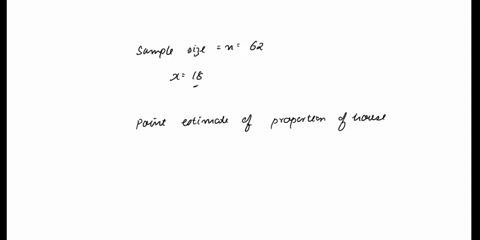 Sample size = n = 62
x = 18
point estimate of proportion of house